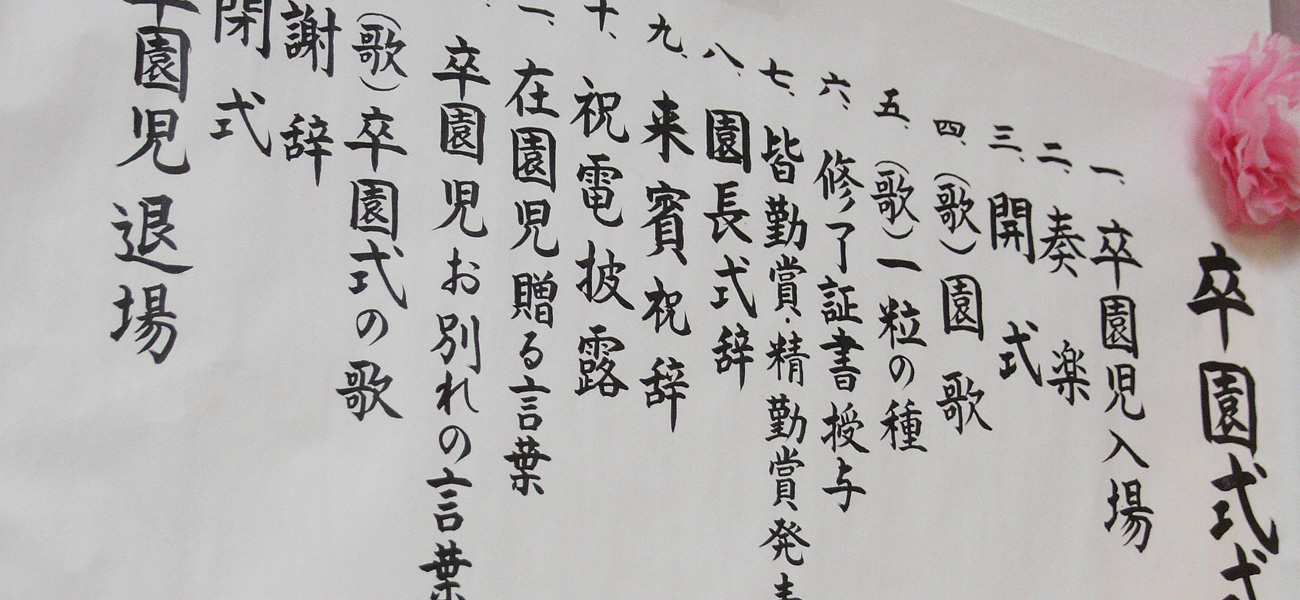 卒園式式
一、卒園児入場
二、奏楽
三、開式
四、(歌)園歌
五、(歌)一粒の種
六、修了証書授与
七、皆勤賞・精勤賞発表
八、園長式辞
九、来賓祝辞
十、祝電披露
一、在園児贈る言葉
卒園児お別れの言葉
(歌)卒園式の歌
謝辞
閉式
卒園児退場